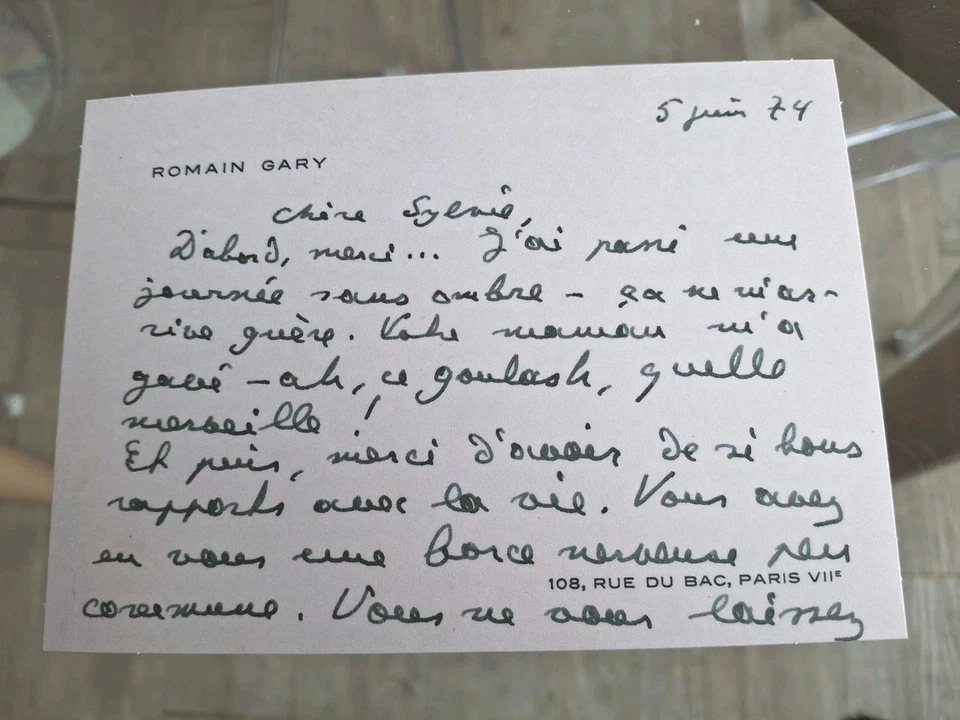 5 juin 74
ROMAIN GARY
Chère Sylvie,
D'abord, merci... J'ai passé une
journée sans ombre - ça ne m'ar-
rive guère. Votre maman m'a
gavé - ah, ce goulash, quelle
merveille !
Et puis, merci d'avoir de si bons
rapports avec la vie. Vous avez
en vous une force nerveuse peu
108, RUE DU BAC, PARIS VIIE
commune. Vous ne vous laissez